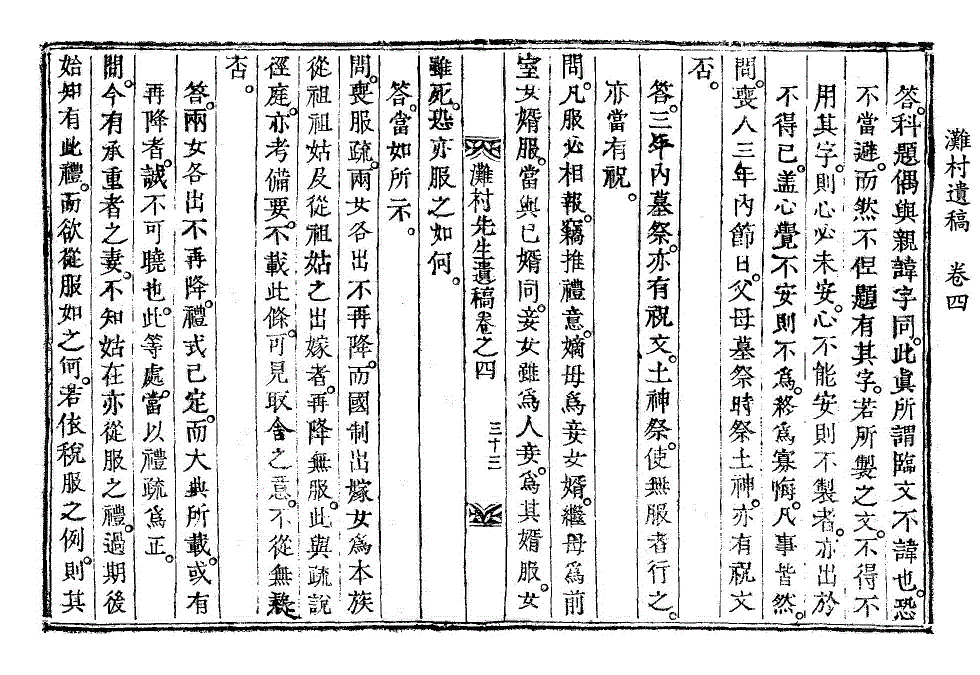 灘村遺稿 卷四
答。科題偶與親諱字同。此眞所謂臨文不諱也。恐
不當避。而然不但題有其字。若所製之文。不得不
用其字。則心必未安。心不能安則不製者。亦出於
不得已。盖心覺不安則不爲。終爲寡悔。凡事皆然。
問。喪人三年內節日。父母墓祭時祭土神。亦有祝文
否。
答。三年內墓祭。亦有祝文。土神祭。使無服者行之。
亦當有祝。
問。凡服必相報。竊推禮意。嫡母爲妾女婿。繼母爲前
室女婿服。當與己婿同。妾女雖爲人妾。爲其婿服。女
雖死。恐亦服之如何。
灘村先生遺稿卷之四 三十三
答。當如所示。
問。喪服疏。兩女各出不再降。而國制出嫁女爲本族
從祖祖姑及從祖姑之出嫁者。再降無服。此與疏說
徑庭。亦考備要。不載此條。可見取舍之意。不從無裞
否。
答。兩女各出不再降。禮式已定。而大典所載。或有
再降者。誠不可曉也。此等處。當以禮疏爲正。
問。今有承重者之妻。不知姑在亦從服之禮。過期後
始知有此禮。而欲從服如之何。若依稅服之例。則其